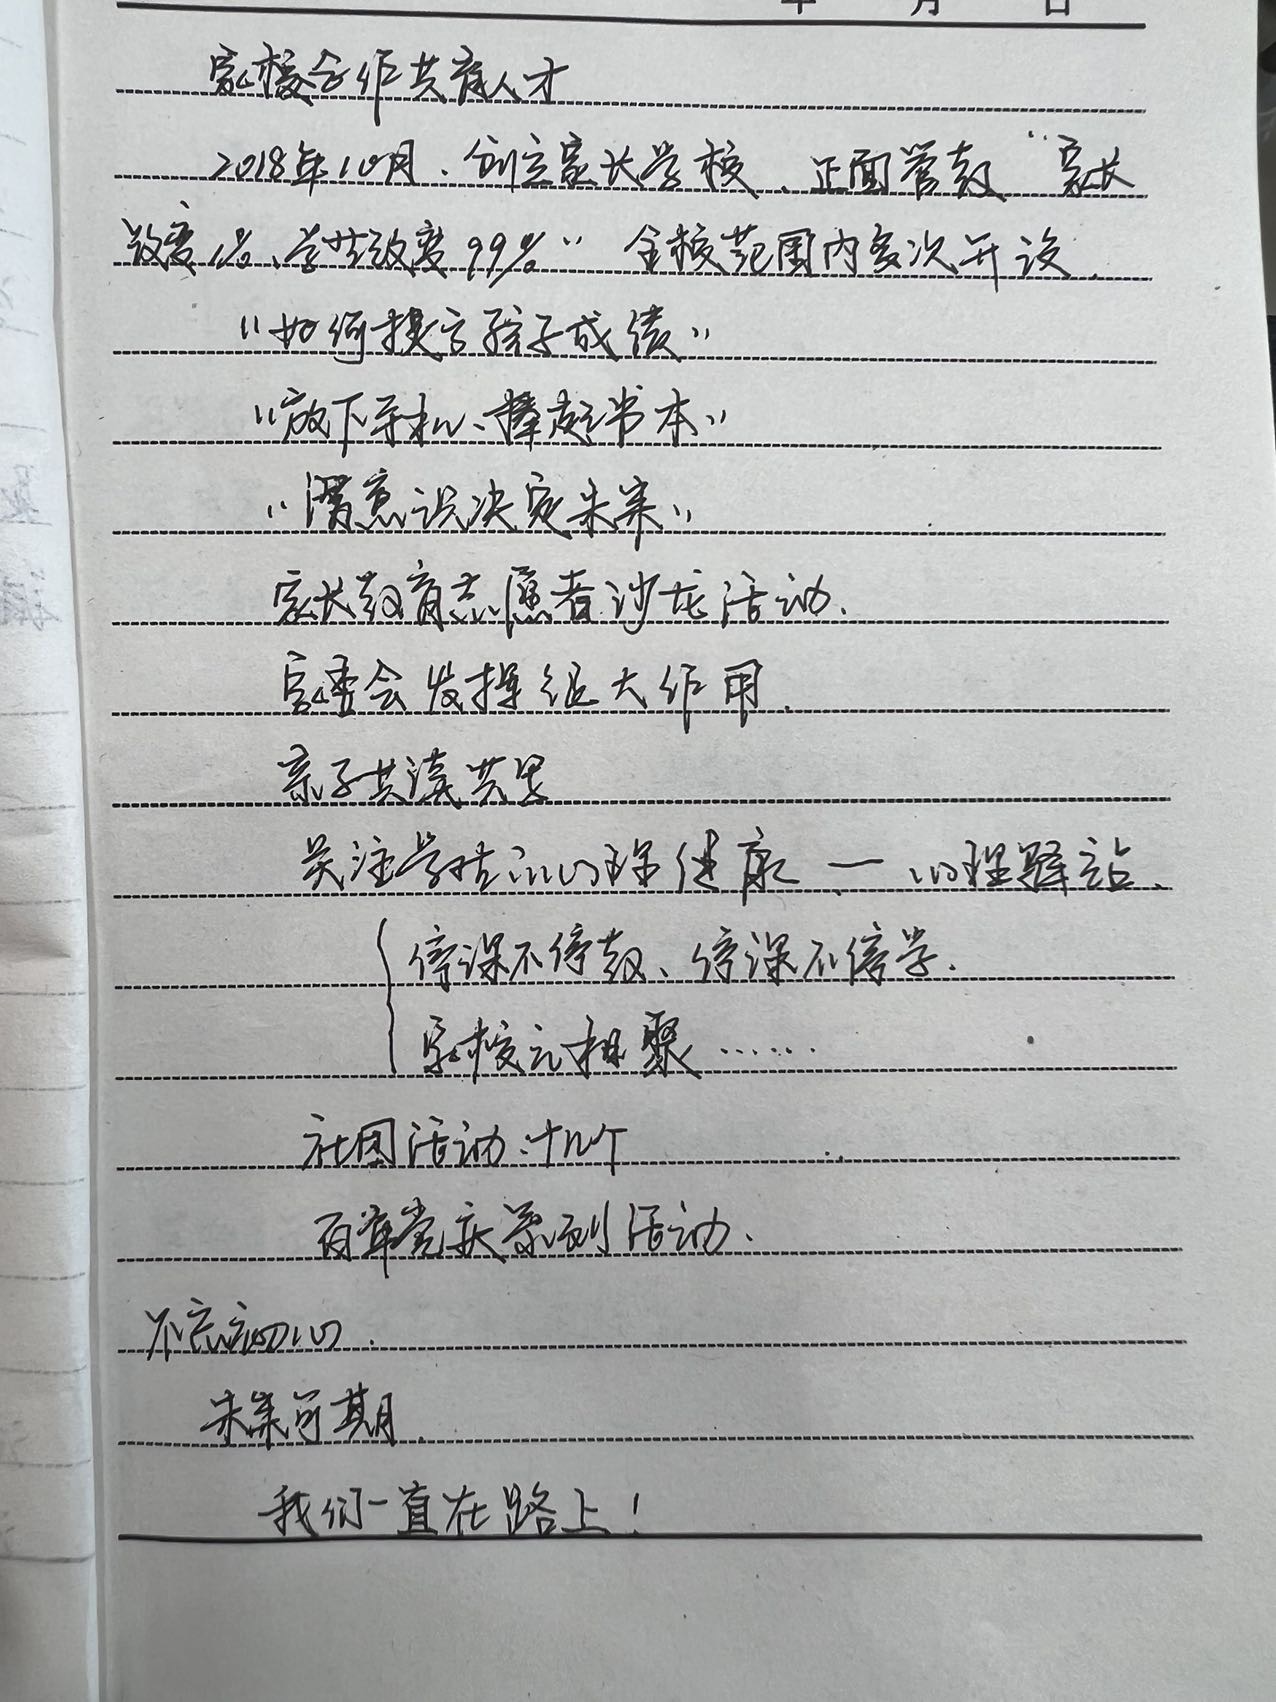 年 月 日
家校合作共育人才
2018年10月、创立家长学校、正面管教 “家长
改变1%、学生改变99%” 全校范围内多次开设、
“如何提高孩子成绩”
“放下手机、捧起书本”
“潜意识决定未来”
家长教育志愿者沙龙活动、
家委会发挥组大作用、
亲子共读共
关注学生心理健康 — 心理驿站、
停课不停教、停课不停学.
家校云相聚……
社团活动:十几个
百年党庆系列活动、
不忘初心、
未来可期、
我们一直在路上!